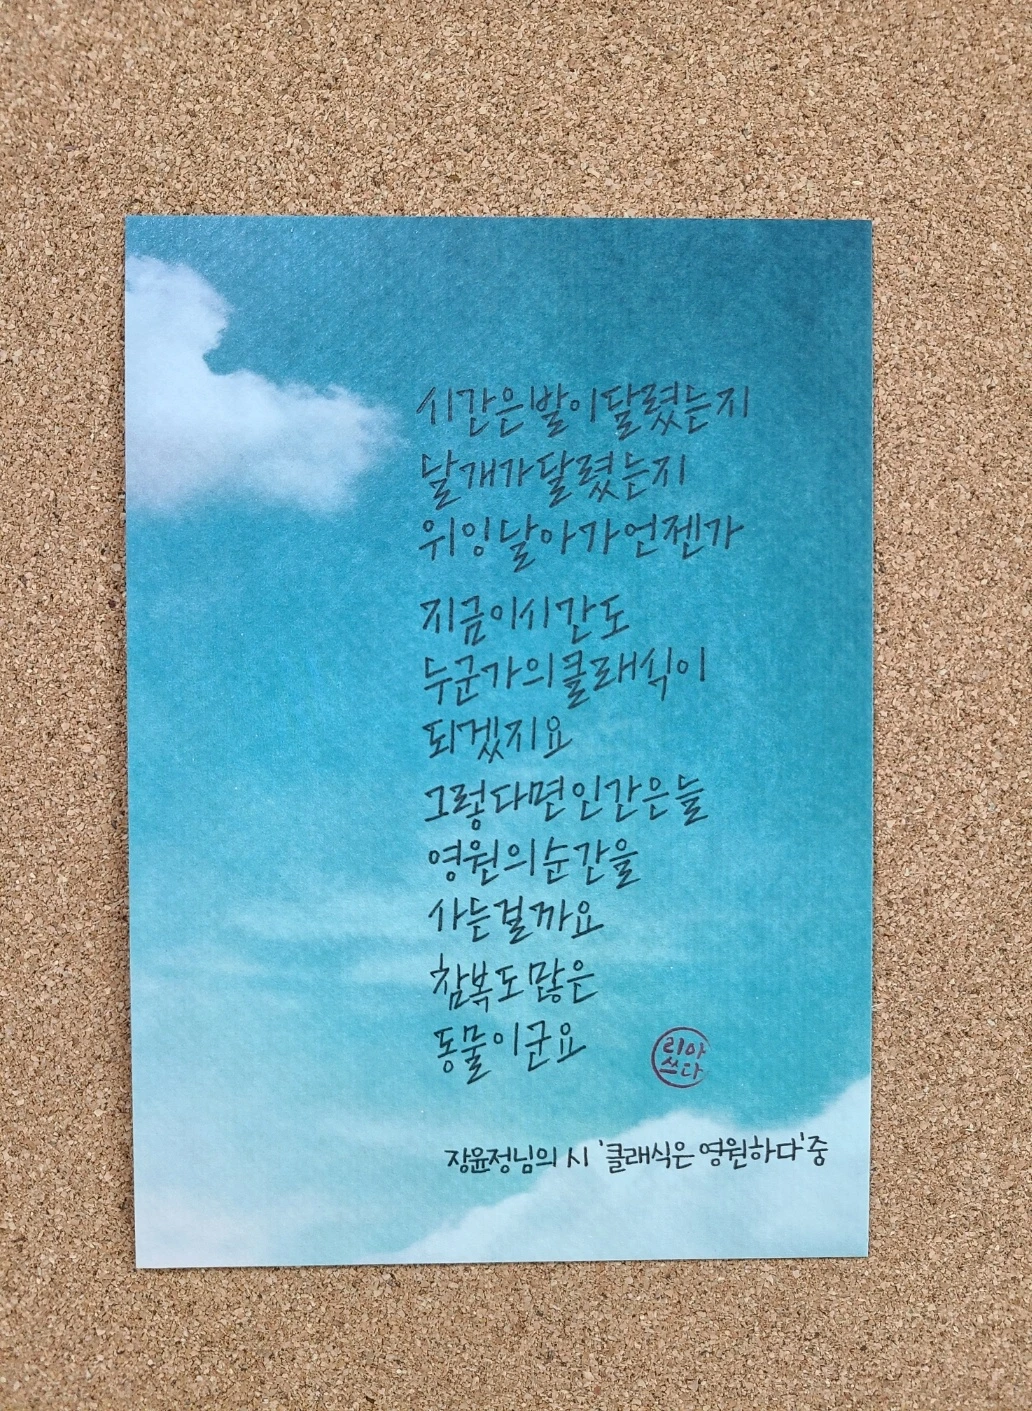 시간은 발이 달렸는지
날개가 달렸는지
위잉 날아가 언젠가
지금 이 시간도
누군가의 클래식이
되겠지요
그렇다면 인간은 늘
영원의 순간을
사는 걸까요
참 복도 많은
동물이군요
리아
쓰다
장윤정님의 시 '클래식은 영원하다' 중